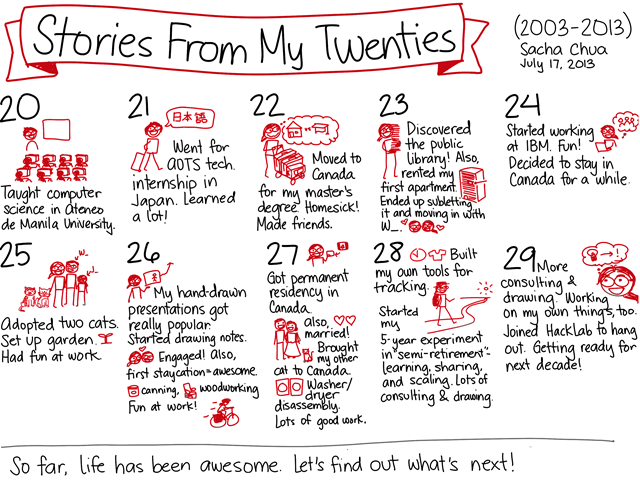 Stories From My Twenties
(2003-2013)
Sacha Chua
July 17, 2013
20
Taught computer
science in Ateneo
de Manila University.
21
日本語
Went for
AOTS tech.
internship in
Japan. Learned
a lot!
22
Moved to
Canada
for my master's
degree. Homesick!
Made friends.
23
Discovered
the public
library! Also,
rented my
first apartment.
Ended up subletting
it and moving in with
W_.
24
Started working
at IBM. Fun!
Decided to stay in
Canada for a while.
25
W-
J-
Adopted two cats.
Set up garden.
Had fun at work
26
My hand-drawn
presentations got
really popular.
Started drawing notes.
Engaged! Also,
first staycation = awesome.
canning, woodworking
Fun at work!
27
Got permanent
residency in
Canada.
Also,
married!
Brought
my other
cat to Canada
Washer/
dryer
disassembly.
Lots of good work.
28
Built
my own tools for
tracking.
Started
my
5-year experiment
in "semi-retirement"-
learning, sharing,
and scaling. Lots of
consulting & drawing.
29
More
consulting &
drawing. Working
on my own things, too.
Joined HackLab to hang
out. Getting ready for
next decade!
So far, life has been awesome. Let's find out what's next!